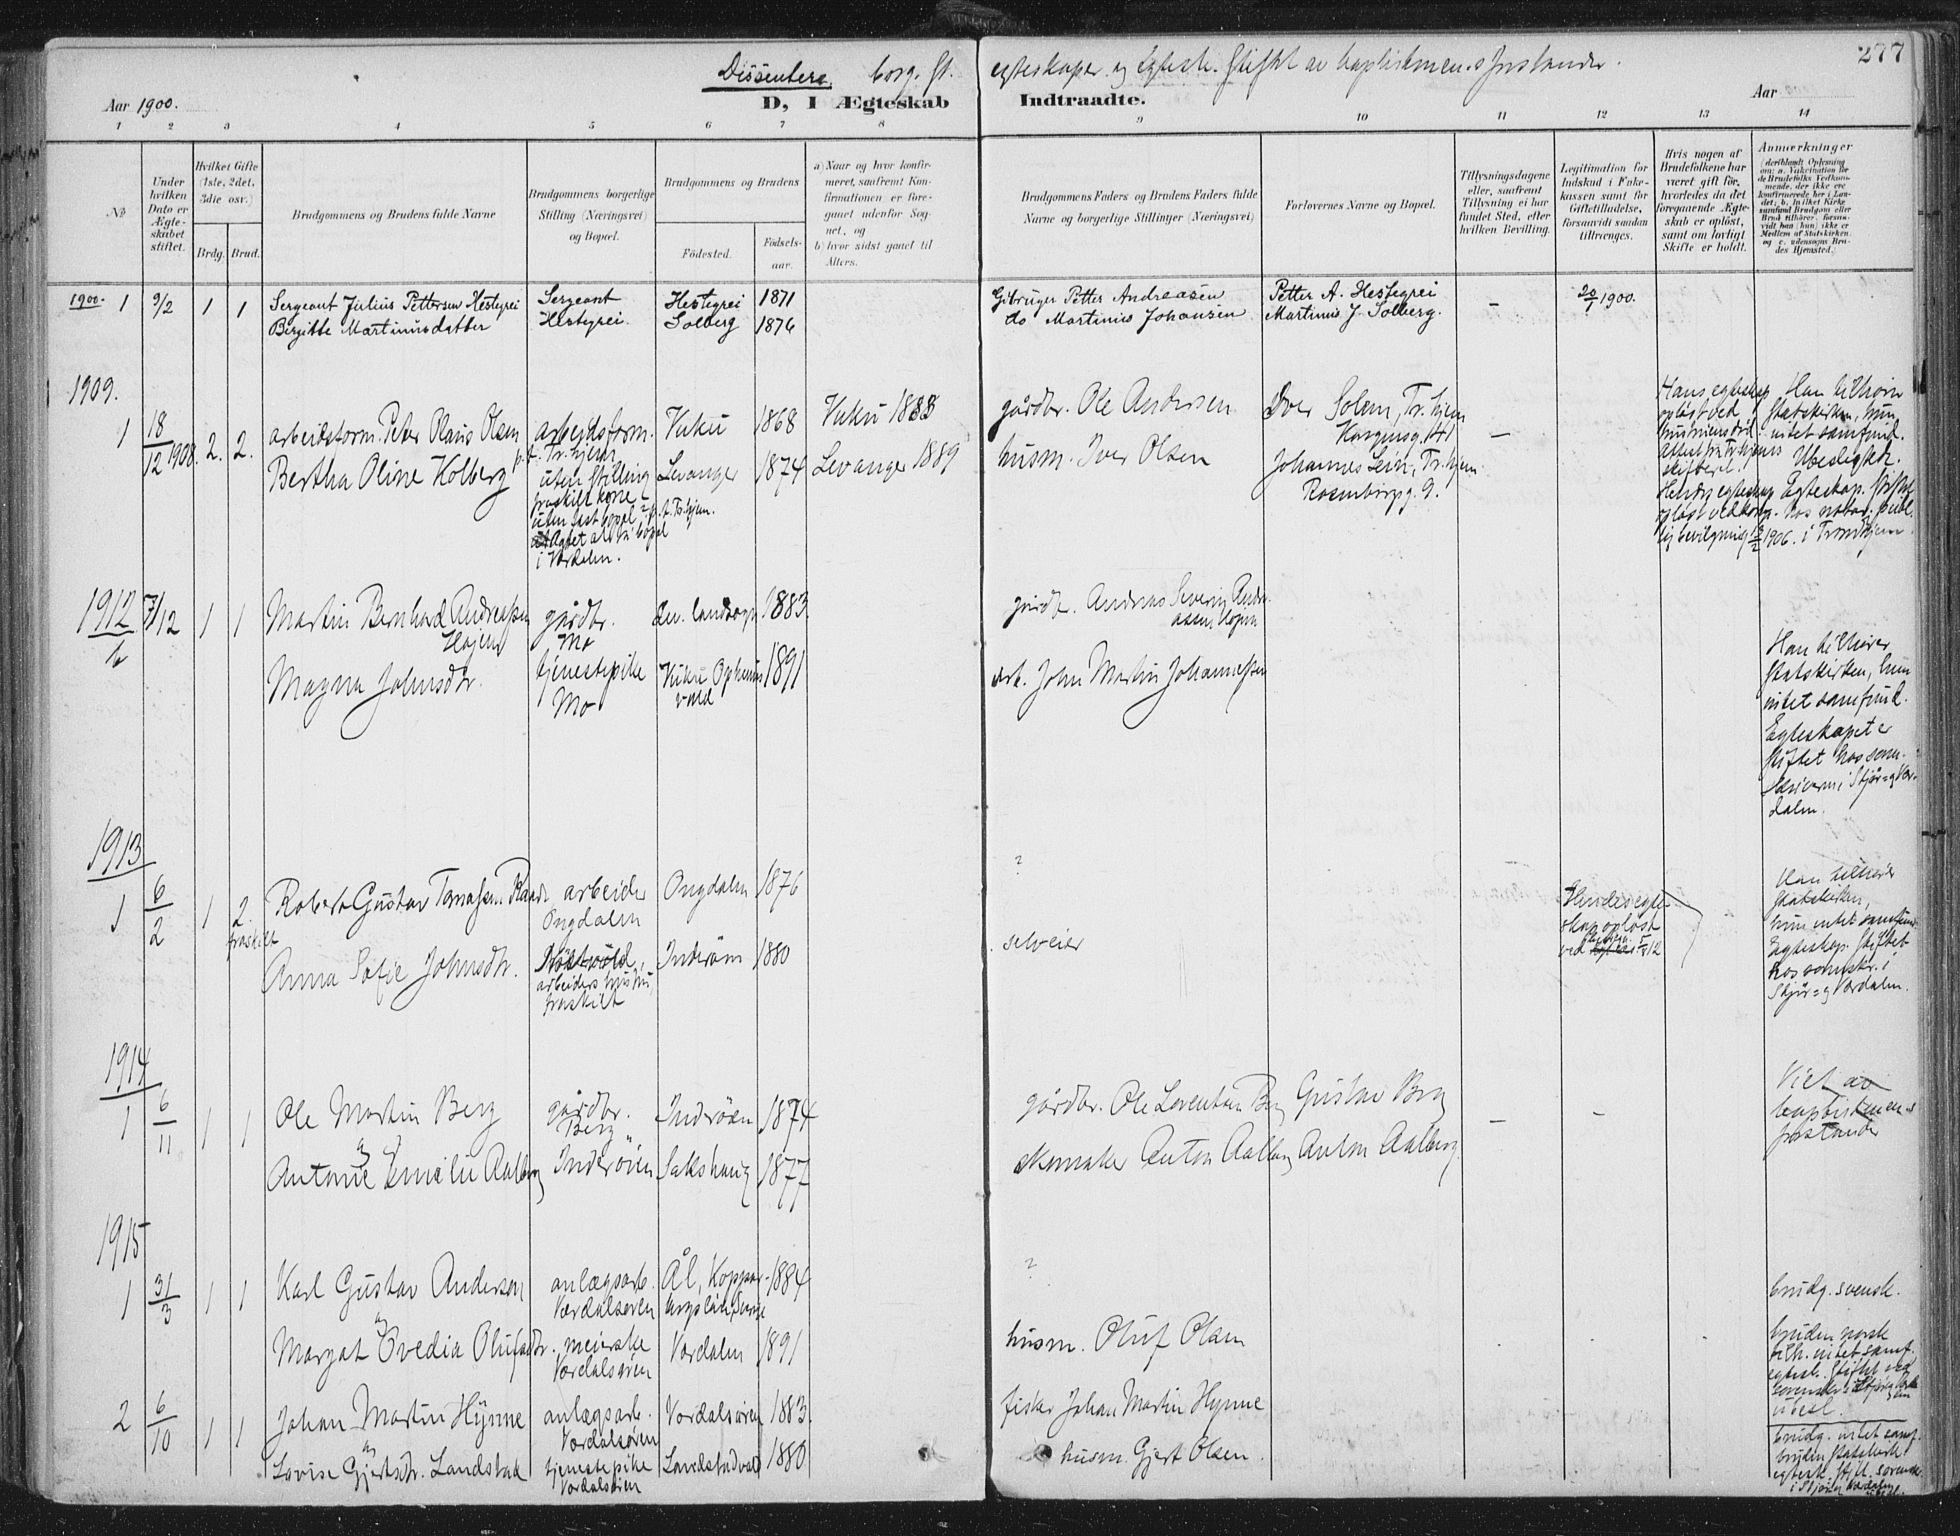 277
Dissentere borg. gt. egteskaper og Egtesk. stiftet av baptistmen.s forstander.
Aar 1900.
D, I Ægteskab Indtraadte.
Aar
1 2 3 4 5 6 7 8 9 10 11 12 13 14
No
Under hvilken Dato er Ægteskabet stiftet.
Hvilket Gifte (1ste, 2det, 3die osv.)
Brdg. Brud.
Brudgommens og Brudens fulde Navne
Brudgommens borgerlige Stilling (Næringsvei) og Bopæl.
Brudgommens og Brudens
Fødested.
Fødselsaar.
a) Naar og hvor konfirmeret, saafremt Konfirmationen er foregaaet udenfor Sognet, og
b) hvor sidst gaaet til Alters.
Brudgommens Faders og Brudens Faders fulde Navne og borgerlige Stillinger (Næringsvei)
Forlovernes Navne og Bopæl.
Tillysningsdagene eller, saafremt Tillysning ei har fundet Sted, efter hvilken Bevilling.
Legitimation for Indskud i Enkekassen samt for Giftetilladelse, forsaavidt saadan tiltrænges.
Hvis nogen af Brudefolkene har været gift før, hvorledes da det foregaaende Ægteskab er opløst, samt om lovligt Skifte er holdt.
Anmærkninger
(deriblandt Oplysning om: a. Vaksination for de Brudefolks Vedkommende, der ikke ere konfirmerede her i Landet, b. hvilket Kirkesamfund Brudgom eller Brud tilhører, forsaavidt han (hun) ikke er Medlem af Statskirken, og c. udensogns Brudes Hjemsted.
1900. 1 9/2 1 1 Sergeant Julius Pettersen Hestegrei Sergeant Hestegrei 1871 Gbruger Petter Andreasen Petter A. Hestegrei - 20/1 1900.
Birgitte Martinusdatter Hestegrei. Solberg 1876 do Martinus Johansen Martinus J. Solberg.
1909.
1 18/12 1908. 2. 2. arbeidsform. Peter Olaus Olsen arbeidsform. Vuku 1868 Vuku 1883 gårdbr. Ole Andersen Iver Solem, Tr.hjem
p.t. Tr.hjem
Bertha Oline Holberg uten stilling Levanger 1874 Levanger 1889 husm. Iver Olsen Johannes Lein, Tr.hjem
fraskilt kone
uten fast bopel p.t. Tr.hjem.
i Værdalen.
Hans egteskap opløst ved hustruens død.
Hendes egteskap
bevilgning 1906.
Han tilhører statskirken, hun intet samfund. Ubeslegtet. Egteskap. stiftet hos notar. publ. i Trondhjem.
1912
7/12 1 1 Martin Bernhard Andreassen Højem gårdbr. Mo Lev. landsogn 1883. gårdbr. Andreas Severin Andreassen Højem
Magna Johnsdtr. tjenestepike Mo 1891 arb. John Martin Johannessen
Han tilhører statskirken, hun intet samfund. Egteskapet er stiftet hos sorenskriveren i Stjør- og Værdalen.
1913
1 6/2 1 2. fraskilt Robert Gustav Tomassen arbeider Ongdalen Ongdalen 1876 ?
Anna Sofie Johnsdtr. arbeiders hustru, fraskilt Inderøen 1880 selveier
Hendes egteskap opløst ved
Han tilhører statskirken, hun intet samfund. Egteskap. stiftet hos sorenskr. i Stjør- og Værdalen.
1914
1 6/11 1 1 Ole Martin Berg gårdbr. Berg Inderøen 1874 gårdbr. Ole Lorentsen Berg Gustav Berg - -
og
Antonie Emilie Aalberg Inderøien Sakshaug 1877 skomaker Anton Aalberg Anton Aalberg
Viet av baptistmen.s forstander
1915
1 31/3 1 1 Karl Gustav Anderson anlægsarb. Værdalsøren Ål, Kopparbergs län, Sverige 1884 ?
og
Margot Ovedia Olufsdtr. meierske Værdalsøren Værdalen 1891 husm. Oluf Olsen
brudg. svensk.
bruden norsk tilh. intet samf. egtesk. stiftet ved
2 6/10 1 1 Johan Martin Hynne anlægsarb. Værdalsøren Værdalsøren 1883. fisker Johan Martin Hynne
og
Lovise Gjertsdtr. Landstad tjenestepike Værdalsøren Landstadvald 1880 husm. Gjert Olsen.
brudg. intet samf. bruden statskirke egtesk. stift. sorenskr. i Stjør- og Værdalen